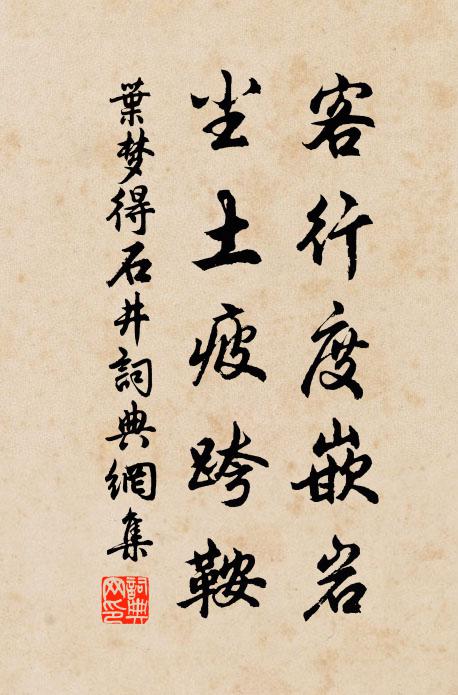 客行度嵌岩
尘土疲跨鞍
葉梦得石井詞典網集
詞典网印